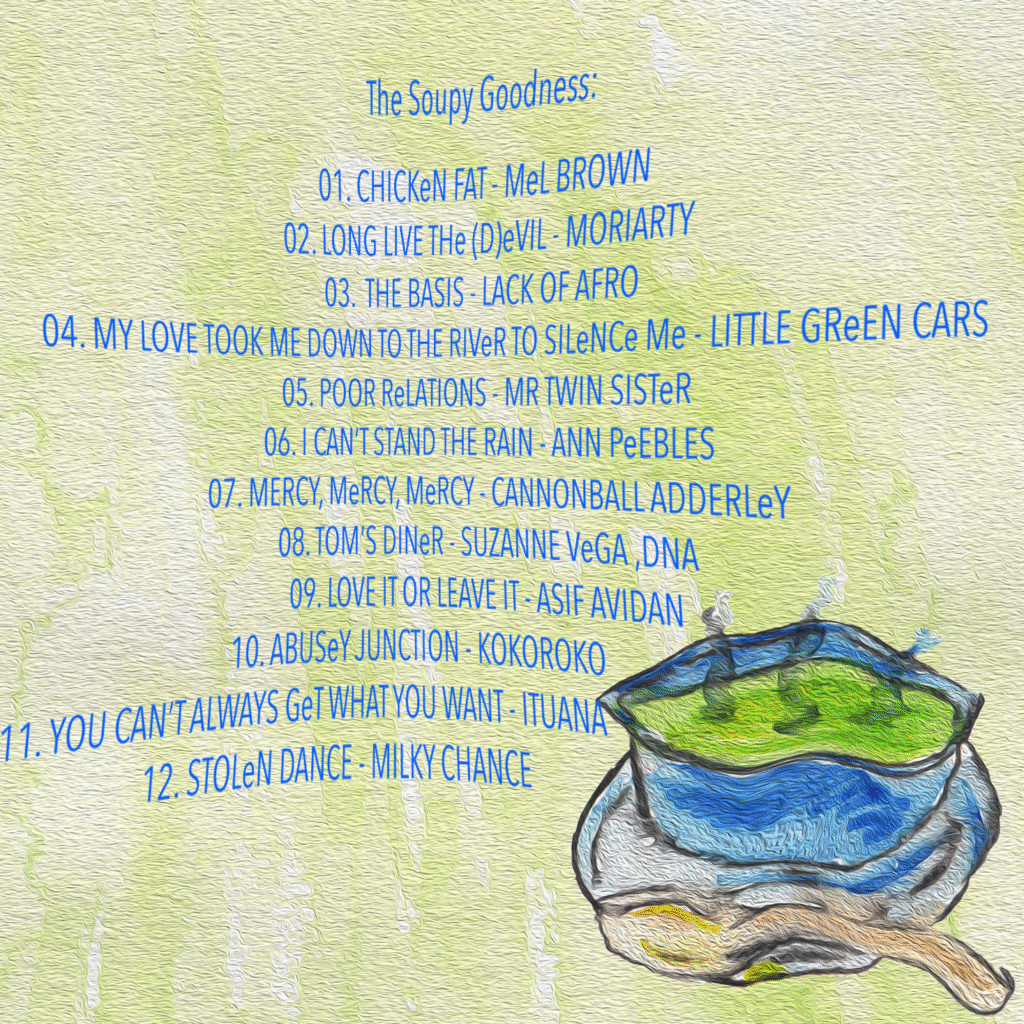 The Soupy Goodness:
01. CHICKeN FAT - MeL BROWN
02. LONG LIVE THe (D)eVIL - MORIARTY
03. THE BASIS - LACK OF AFRO
04. MY LOVE TOOK ME DOWN TO THE RIVeR TO SILeNCe Me - LITTLE GReEN CARS
05. POOR ReLATIONS - MR TWIN SISTeR
06. I CAN'T STAND THE RAIN - ANN PeEBLES
07. MERCY, MeRCY, MeRCY - CANNONBALL ADDERLeY
08. TOM'S DINeR - SUZANNE VeGA ,DNA
09. LOVE IT OR LEAVE IT - ASIF AVIDAN
10. ABUSeY JUNCTION - KOKOROKO
11. YOU CAN'T ALWAYS GeT WHAT YOU WANT - ITUANA
12. STOLeN DANCE - MILKY CHANCE